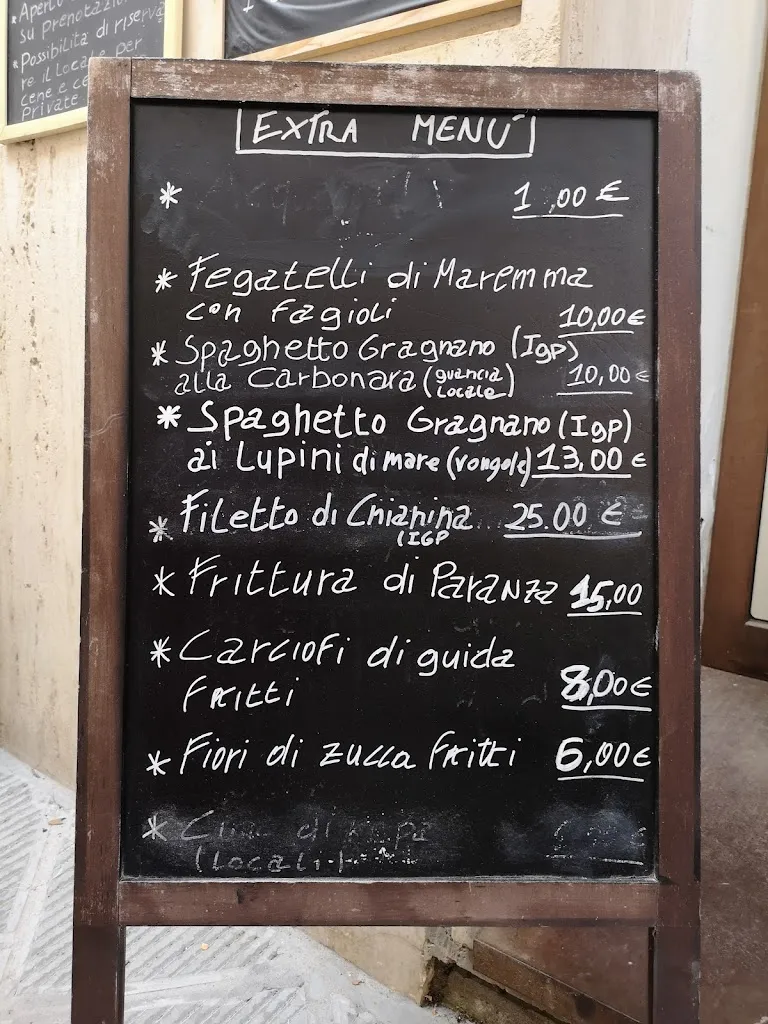 * Aperto
su prenotazio
* Possibilità di riserva
re il locale per
cene e ce
private
EXTRA MENÙ
* 1 ,00 €
* Fegatelli di Maremma
con fagioli 10,00 €
* Spaghetto Gragnano (Igp)
alla Carbonara (guancia locale) 10,00 €
* Spaghetto Gragnano (Igp)
ai Lupini di mare (vongole) 13,00 €
* Filetto di Chianina 25.00 €
(IGP
* Frittura di Paranza 15,00
* Carciofi di guida
fritti 8,00 €
* Fiori di zucca fritti 6,00 €
* di
(Locali)